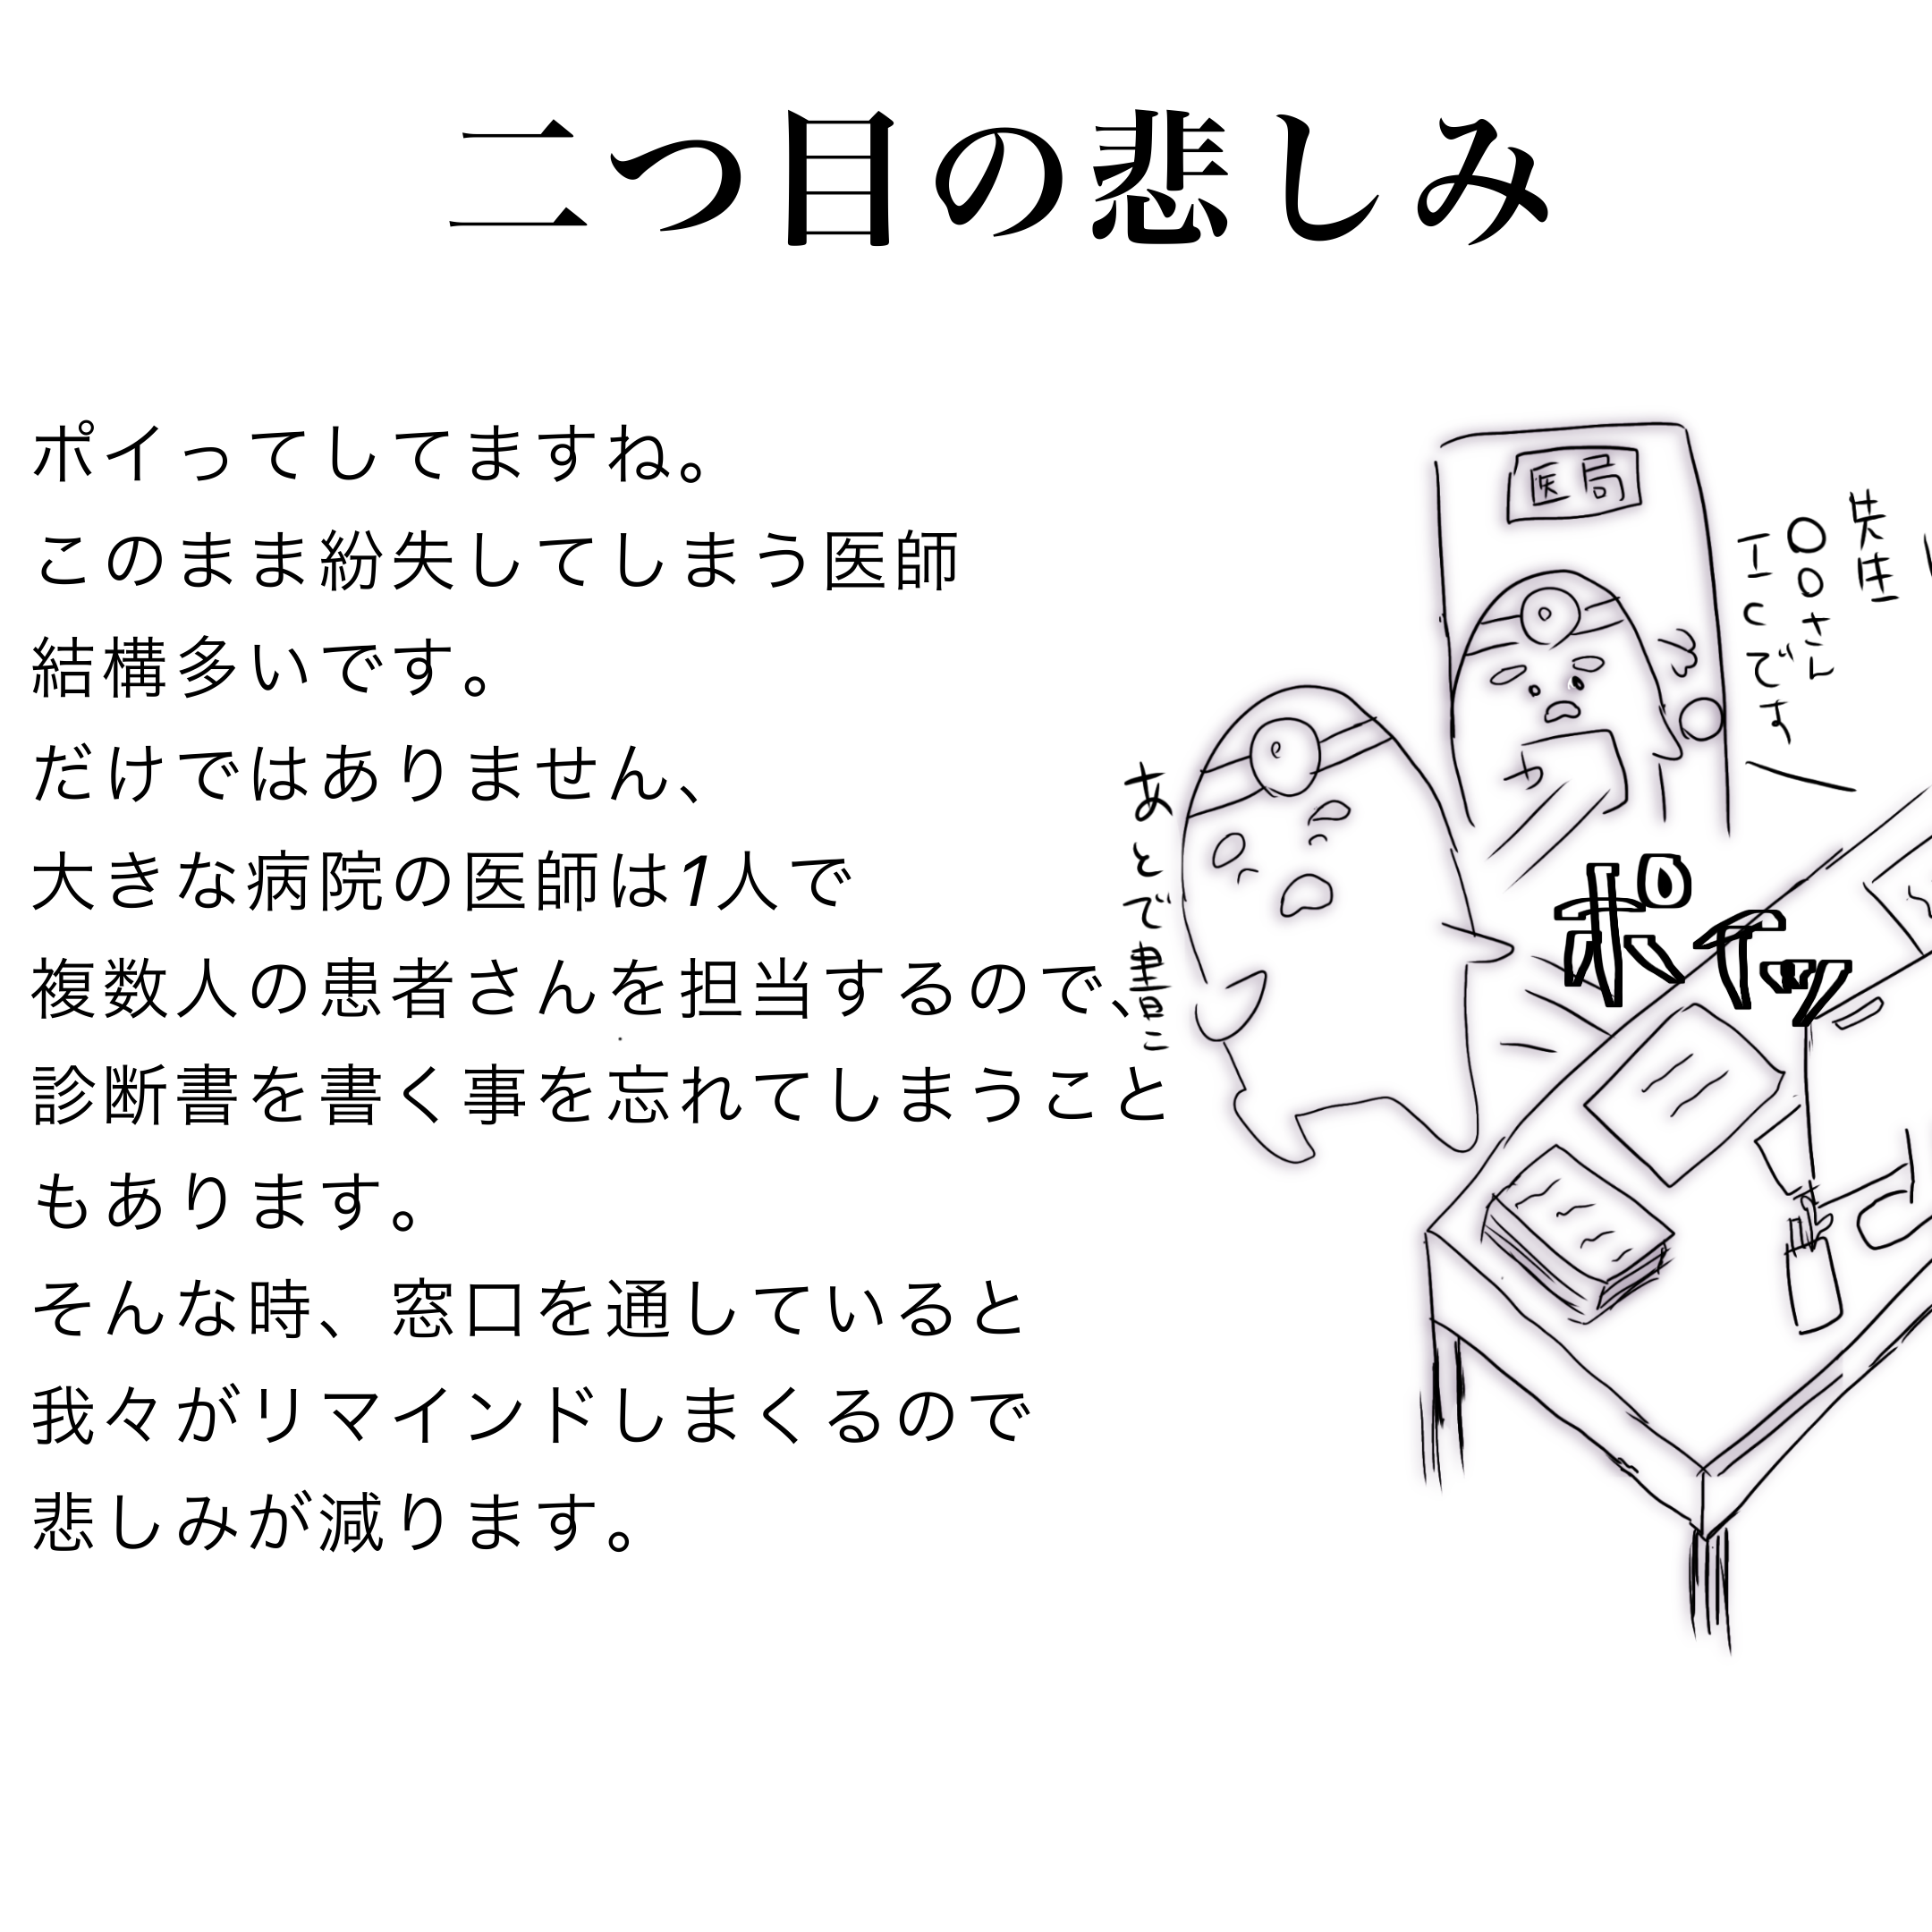 二つ目の悲しみ
ポイってしてますね。
このまま紛失してしまう医師
結構多いです。
だけではありません、
大きな病院の医師は1人で
複数人の患者さんを担当するので、
診断書を書く事を忘れてしまうこと
もあります。
そんな時、窓口を通していると
我々がリマインドしまくるので
悲しみが減ります。
医局
先生
〇〇さん
ICです
あとで書こ
ポイッ